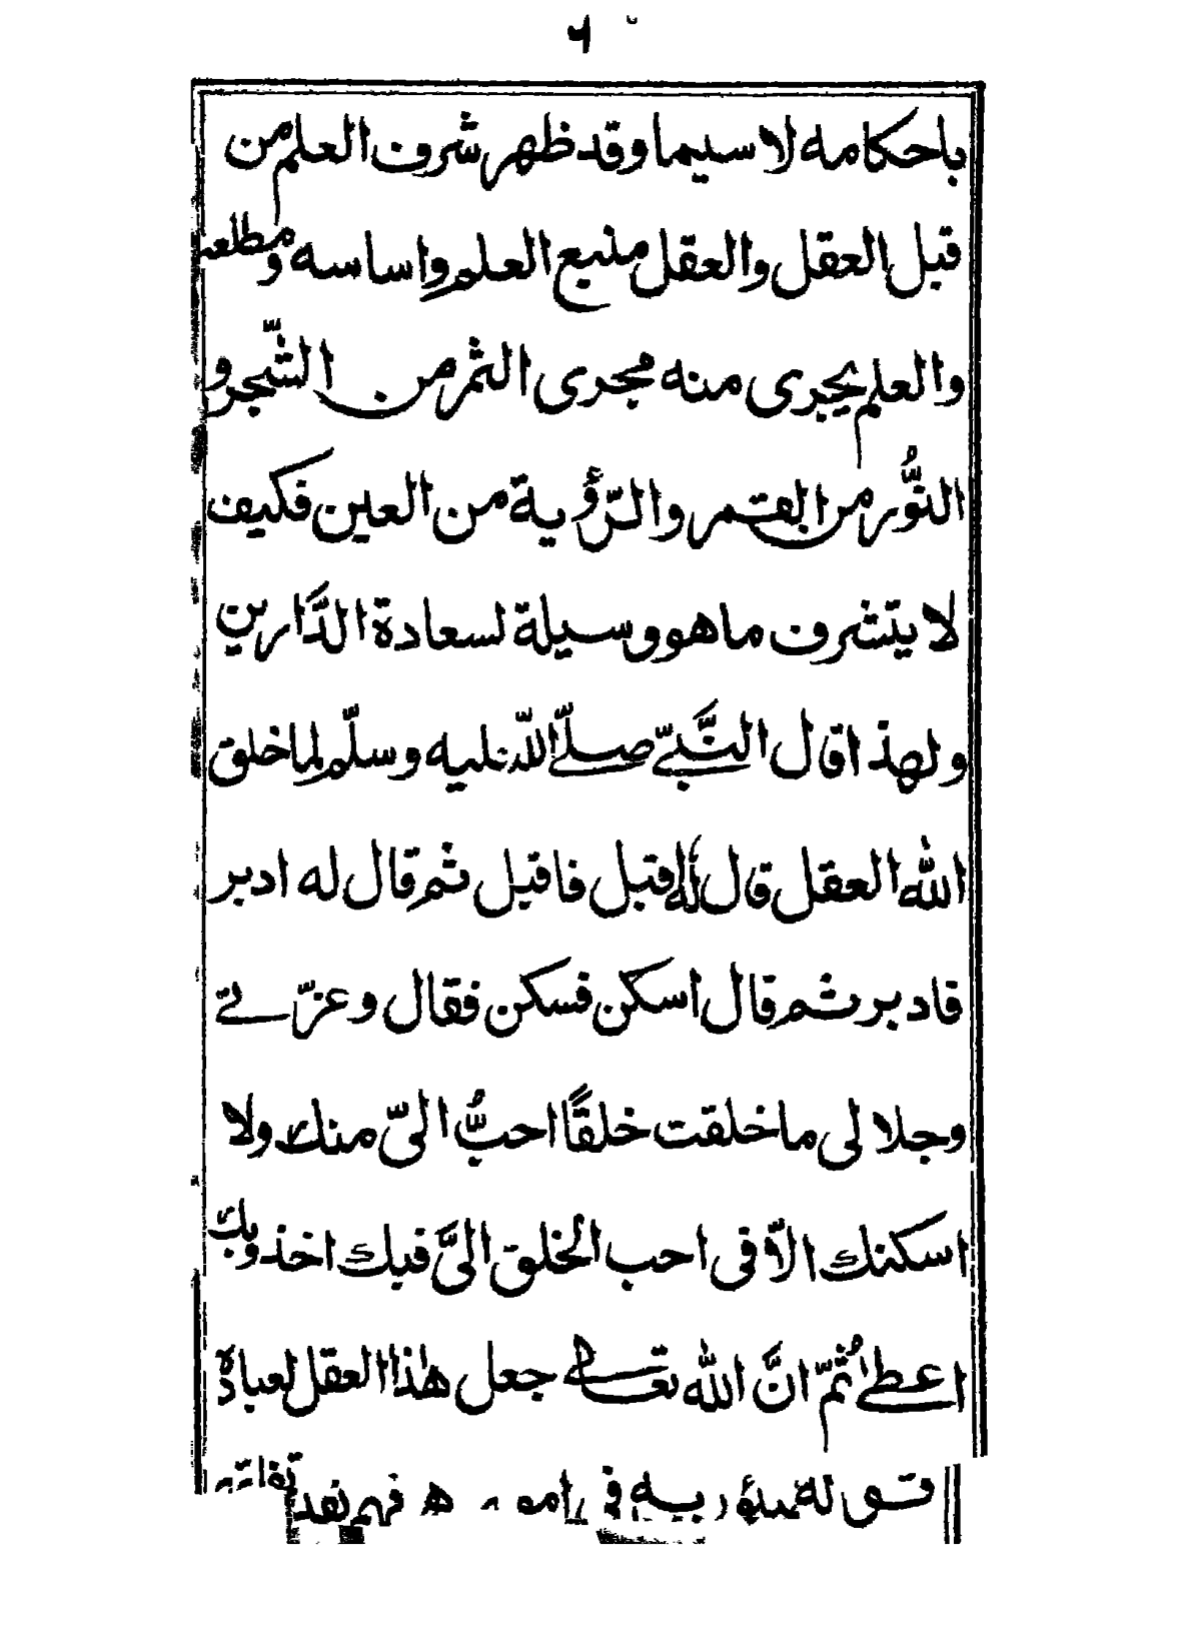 ٦
باحكامه لا سيما وقد ظهر شرف العلم من
قبل العقل والعقل منبع العلم واساسه ومطلعه
والعلم يجرى منه مجرى الثمر من الشّجر و
النُّور من القمر والرّؤية من العين فكيف
لا يتشرف ما هو وسيلة لسعادة الدَّارين
ولهذا قال النَّبىّ صلّى اللّٰه عليه وسلّم لما خلق
اللّٰه العقل قال له اقبل فاقبل ثم قال له ادبر
فادبر ثم قال اسكن فسكن فقال وعزّتى
وجلالى ما خلقت خلقًا احبُّ الىّ منك ولا
اسكنك الّا فى احب الخلق الىَّ فبك اخذ وبك
اعطى ثُمّ انَّ اللّٰه تعالى جعل هٰذا العقل لعباده
فى